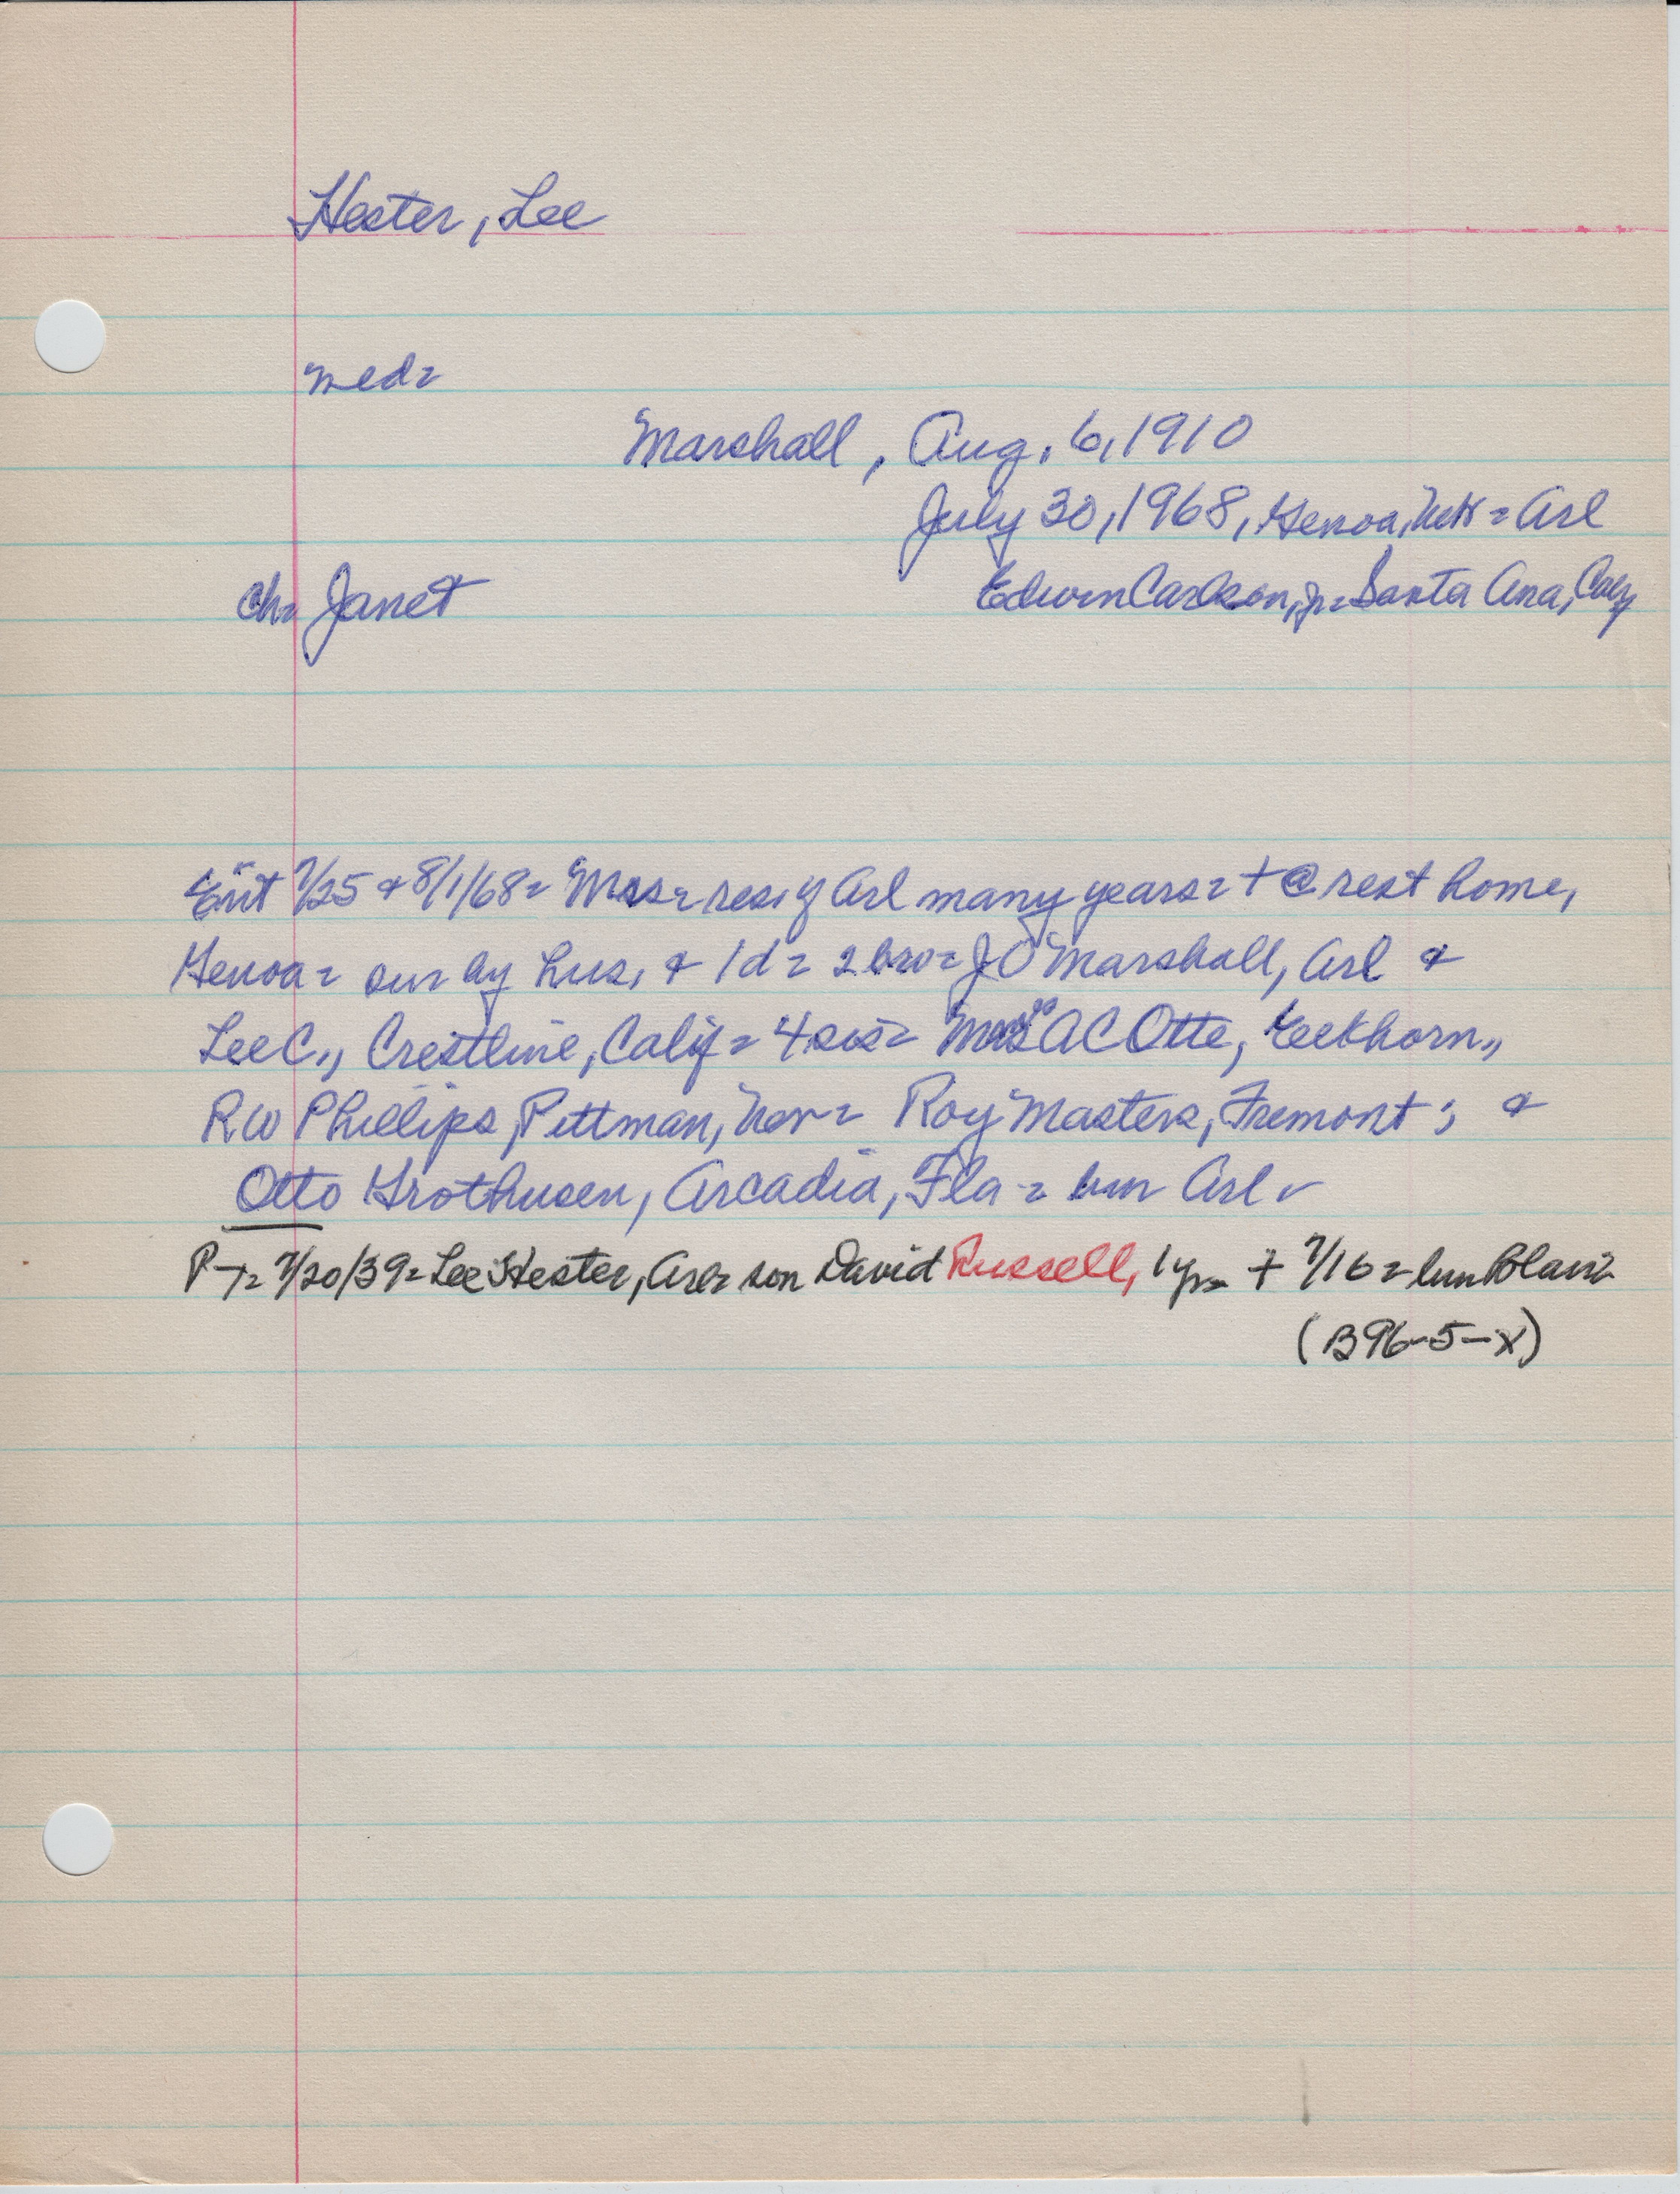 Hester, Lee
med=
Marshall, Aug. 6, 1910
July 30, 1968, Genoa, Neb = Arl
ch= Janet Edwin Carlson, jr= Santa Ana, Cal
7/25 & 8/1/68= Mrs= res. of Arl many years= + @ rest home,
Genoa= sur by hus, & 1 d= 2 bro= J O Marshall, Arl &
Lee C., Crestline, Calif= 4 sis= Mmes A C Otte, Leekhorn,,
R W Phillips, Pittman, Nev= Roy Masters, Fremont; &
Otto Grothusen, Arcadia, Fla= bur Arl
P-T= 7/20/39= Lee Hester, Arl= son David Russell, 1 yr= + 7/16= bur Blair=
(B96-5-X)